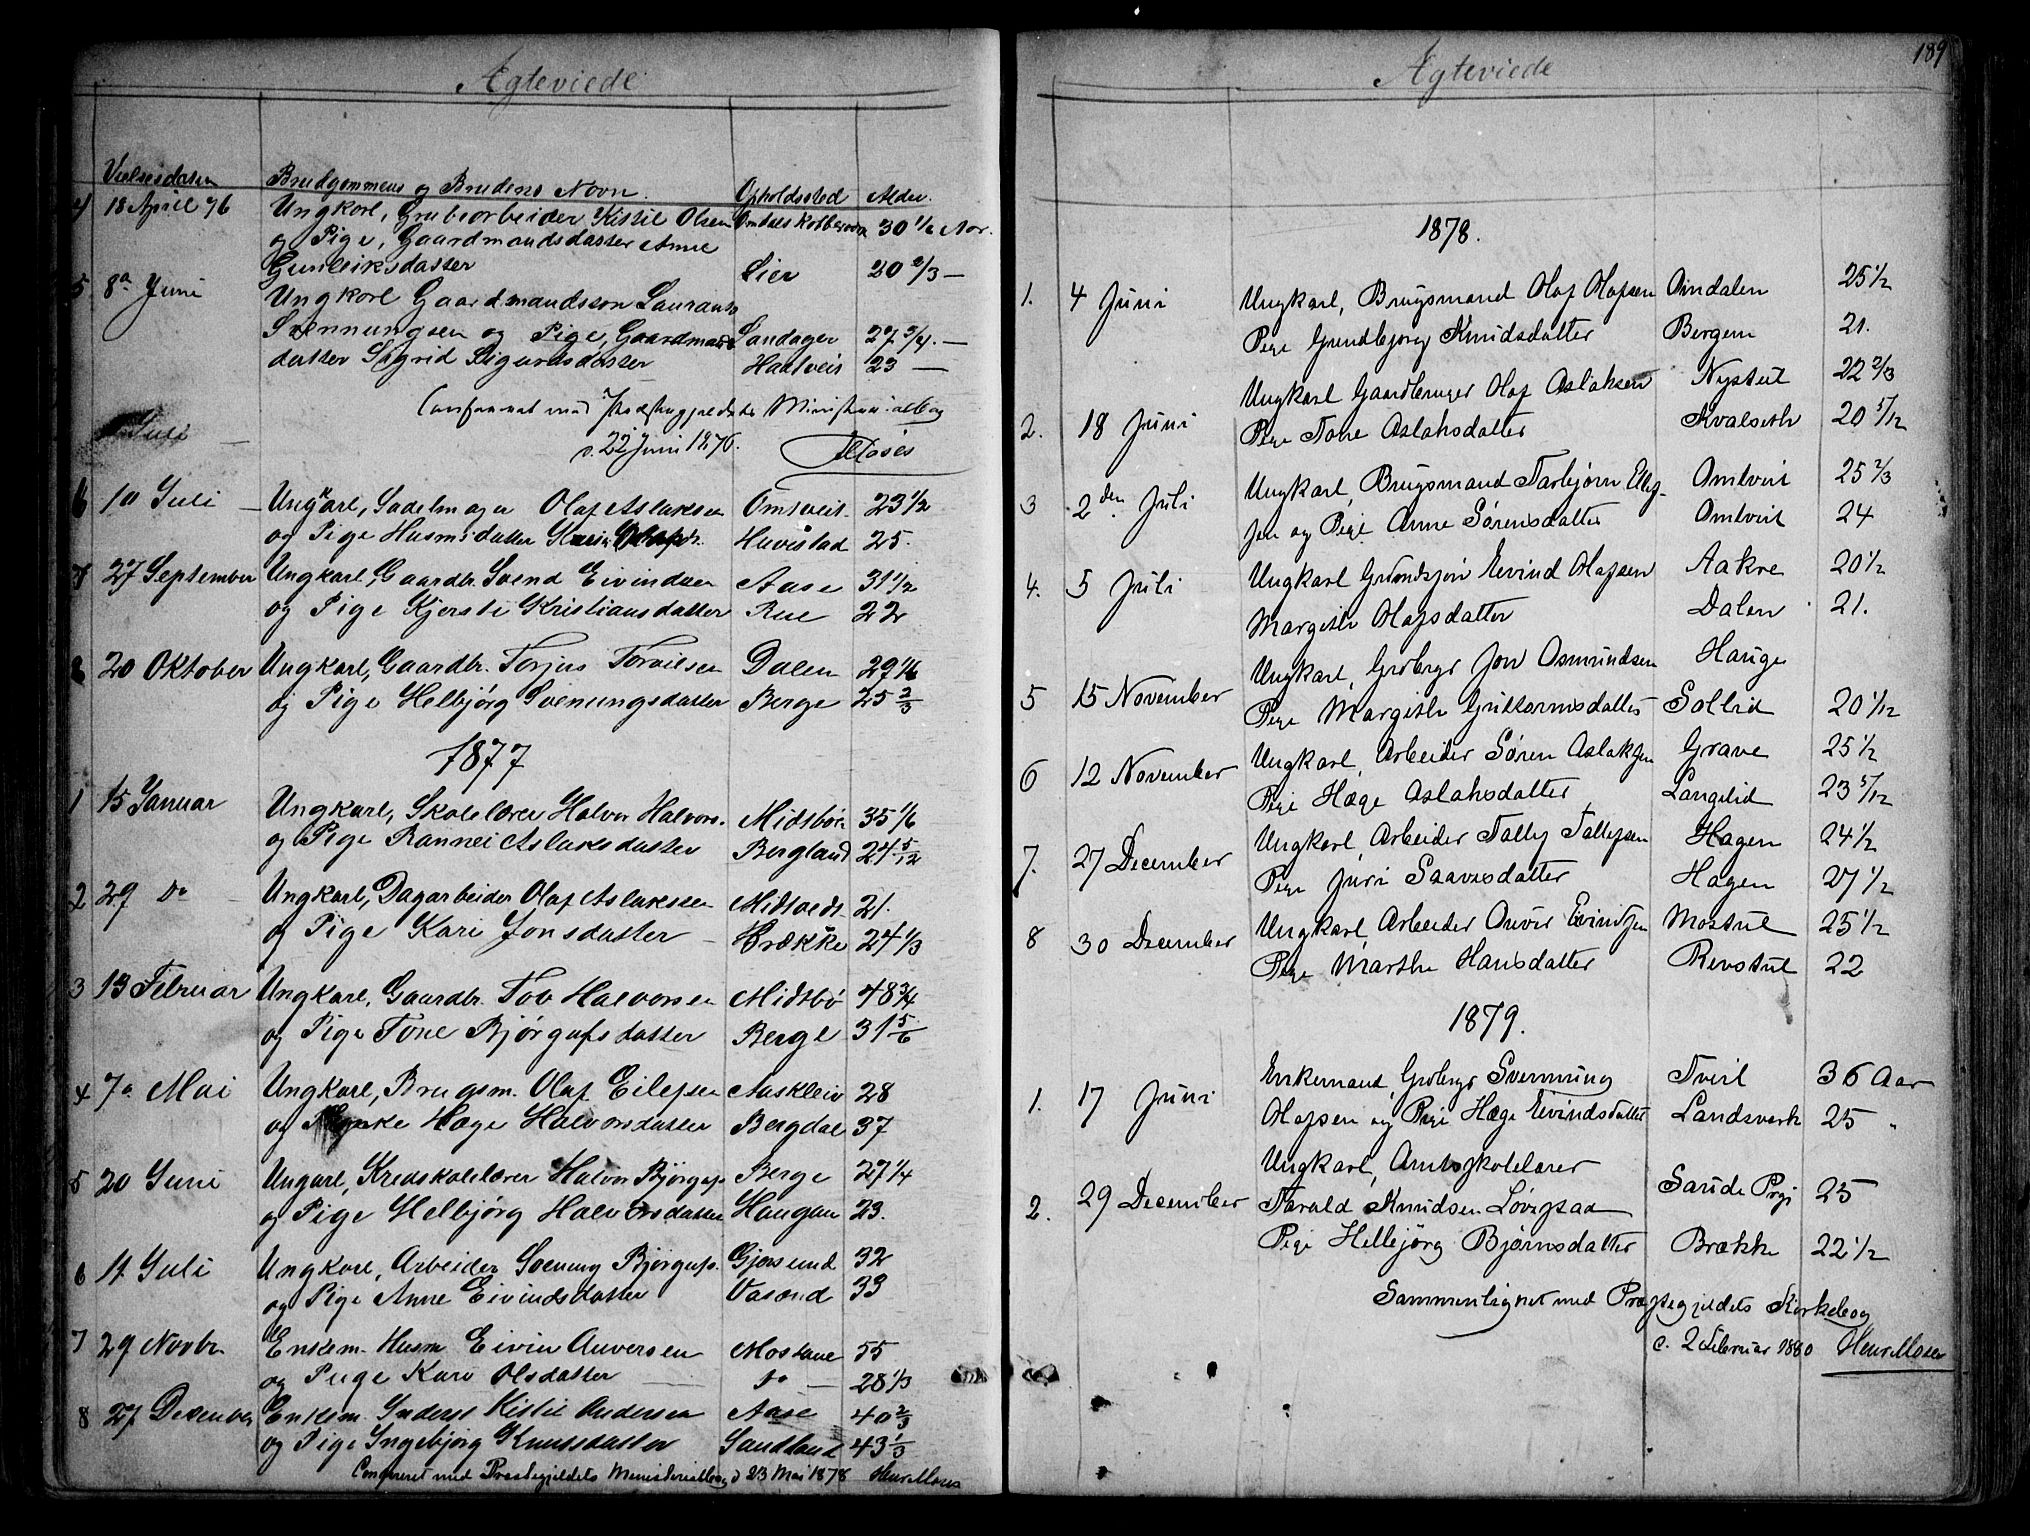 Ægteviede
Vielsesdatum Brudgommens og Brudens Navn. Opholdssted Alder.
4 18 April 76 Ungkarl, Grubearbeider Kittil Olsen Omdals Kobberværk 30 1/6 Aar.
og Pige, Gaardmandsdatter Anne
Gunleiksdatter Lier 20 2/3 —
5 8de Juni Ungkarl Gaardmandssøn Laurants
Svennungsen og Pige, Gaardmands Sandager 27 3/4. —
datter Sigrid Sigurdsdatter Haatveit 23 —
Confereret med Præstegjeldets Ministerialbog
d. 22 Juni 1876. Moses
Juli —
6 10 Juli — Ungkarl, Sadelmager Olaf Aslaksen Omtveit. 23 1/2
og Pige Husmdsdatter Karin Olafsdr. Huvestad 25.
7 27 September Ungkarl, Gaardbr. Svend Eivindsen Aase 31 1/2
og Pige Kjersti Kristiansdatter Rue 22
8 20 Oktober Ungkarl, Gaardbr. Torjus Torvilsen Dalen 29 1/6
og Pige Helbjørg Svenungsdatter Berge 25 2/3
1877
1 15 Januar Ungkarl, Skolelærer Halvor Halvors. Midtbøn 35 1/6
og Pige Rannei Aslaksdatter Bergland 24 5/12
2 29 Do Ungkarl, Dagarbeider Olaf Aslaksen Midtvedt. 21.
og Pige Kari Jonsdatter — Brække 24 1/3
3 13 Februar Ungkarl, Gaardbr. Tov Halvorsen Midtbø 48 3/4
og Pige Tone Bjørgufsdatter Berge 31 5/6
4 7de Mai Ungkarl, Brugsm. Olaf Eilefsen Aaskleiv 28
og Enke Hæge Halvorsdatter Bergdal 37
5 20 Juni Ungarl, Kredsskolelærer Halvor Bjørguf. Berge 27 1/4
og Pige Helbjørg Halvorsdatter Haugan 23.
6 11 Juli Ungkarl, Arbeider Svenung Bjørgufs. Gjersund 32
og Pige Anne Eivindsdatter Vasend 33
7 29 Novbr Enkem. Husm Eivin Anversen Mostane 55
og Pige Kari Olsdatter do — 28 1/3
8 27 Desember Enkem. Inderst Kittil Andersen Aase 40 2/3
og Pige Ingebjørg Knutsdatter Sandland 43 1/3
Confereret med Præstegjeldets Ministerialbog d 23 Mai 1878 Henr. Moses
189
Ægteviede
1878.
1. 4 Juni Ungkarl, Brugsmand Olaf Olafsen Omdalen 25 1/2
Pige Gundbjørg Knudsdatter Bergem 21.
Ungkarl Gaardbruger Olaf Aslaksen Nystul 22 2/3
2. 18 Juni Pige Tone Aslaksdatter Kvalseth 20 5/12
3 2den Juli Ungkarl, Brugsmand Tarbjørn Ellef- Omtveit 25 2/3
sen og Pige Anne Sørensdatter Omtveit 24
4. 5 Juli Ungkarl Grundsjøn Eivind Olafsen Aakre 20 1/2
Margith Olafsdatter Dalen 21.
Ungkarl, Grdbrgr Jon Osmundsen Hauge
5 15 November Pige Margith Guttormsdatter Sollid 20 1/12
6 12 November Ungkarl, Arbeider Søren Aslaksen Grave 25 1/2
Pige Hæge Aslaksdatter, Langelid 23 5/12
7. 27 December Ungkarl, Arbeider Tallef Tallefsen Hagen 24 1/2
Pige Juri Saavesdatter Hagen 27 1/2
8 30 December Ungkarl, Arbeider Anver Eivindsen Mostul 25 1/2
Pige Marthe Hansdatter Revstul 22
1879.
1. 17 Juni Enkemand, Grdbrgr Svennung Tveit 36 Aar
Olafsen og Pige Hæge Eivindsdatter Landsverk 25 "
Ungkarl, Amtsskolelærer
2. 29 December Tarald Knudsen Løvigsad Saude Prgj 25
Pige Hellbjørg Bjørnsdatter Brække 22 1/2
Sammenlignet med Præstegjeldets Kirkebog
d. 2 Februar 1880 Henr. Moses